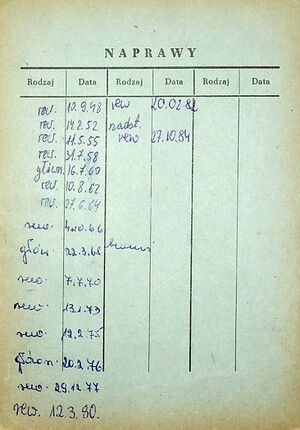 NAPRAWY
Rodzaj Data Rodzaj Data Rodzaj Data
rew. 10.9.48 rew 20.02.82
rew. 14.2.52
rew. 11.5.55 rew 27.10.84
rew. 31.7.58
główn. 16.7.60
rew. 10.8.62
rew. 27.6.64
rew. 4.10.66
główn. 22.3.68
rew. 7.7.70
rew. 13.1.73
rew. 12.2.75
główn 20.2.76
rew. 29.12.77
rew. 12.3.80.